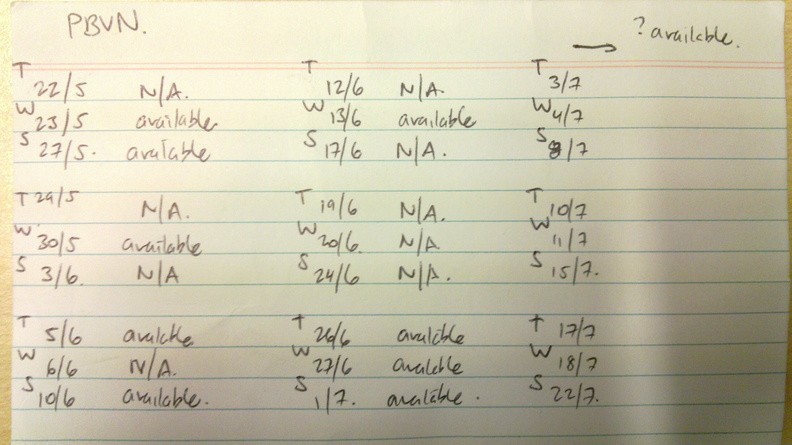 PBVN. → ? available.
T 22/5 N/A. T 12/6 N/A. T 3/7
W 23/5 available W 13/6 available W 4/7
S 27/5. available S 17/6 N/A. S 8/7
T 29/5 N/A. T 19/6 N/A. T 10/7
W 30/5 available W 20/6. N/A W 11/7
S 3/6 N/A S 24/6 N/A. S 15/7.
T 5/6 available T 26/6 available T 17/7
W 6/6 N/A. W 27/6 available W 18/7
S 10/6 available. S 1/7. available. S 22/7.